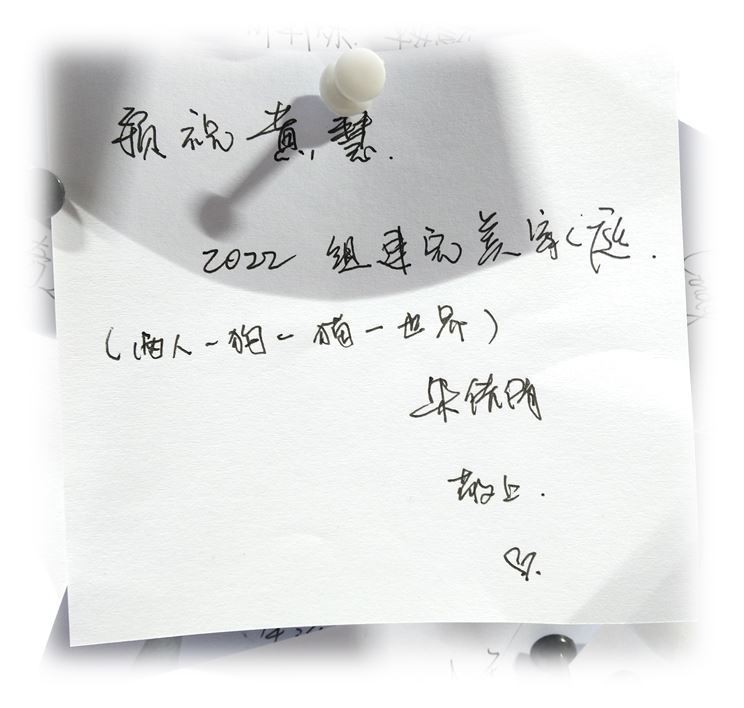 预祝黄慧.
2022 组建完美家庭.
(两人一狗一猫一世界)
朱倩倩
敬上.